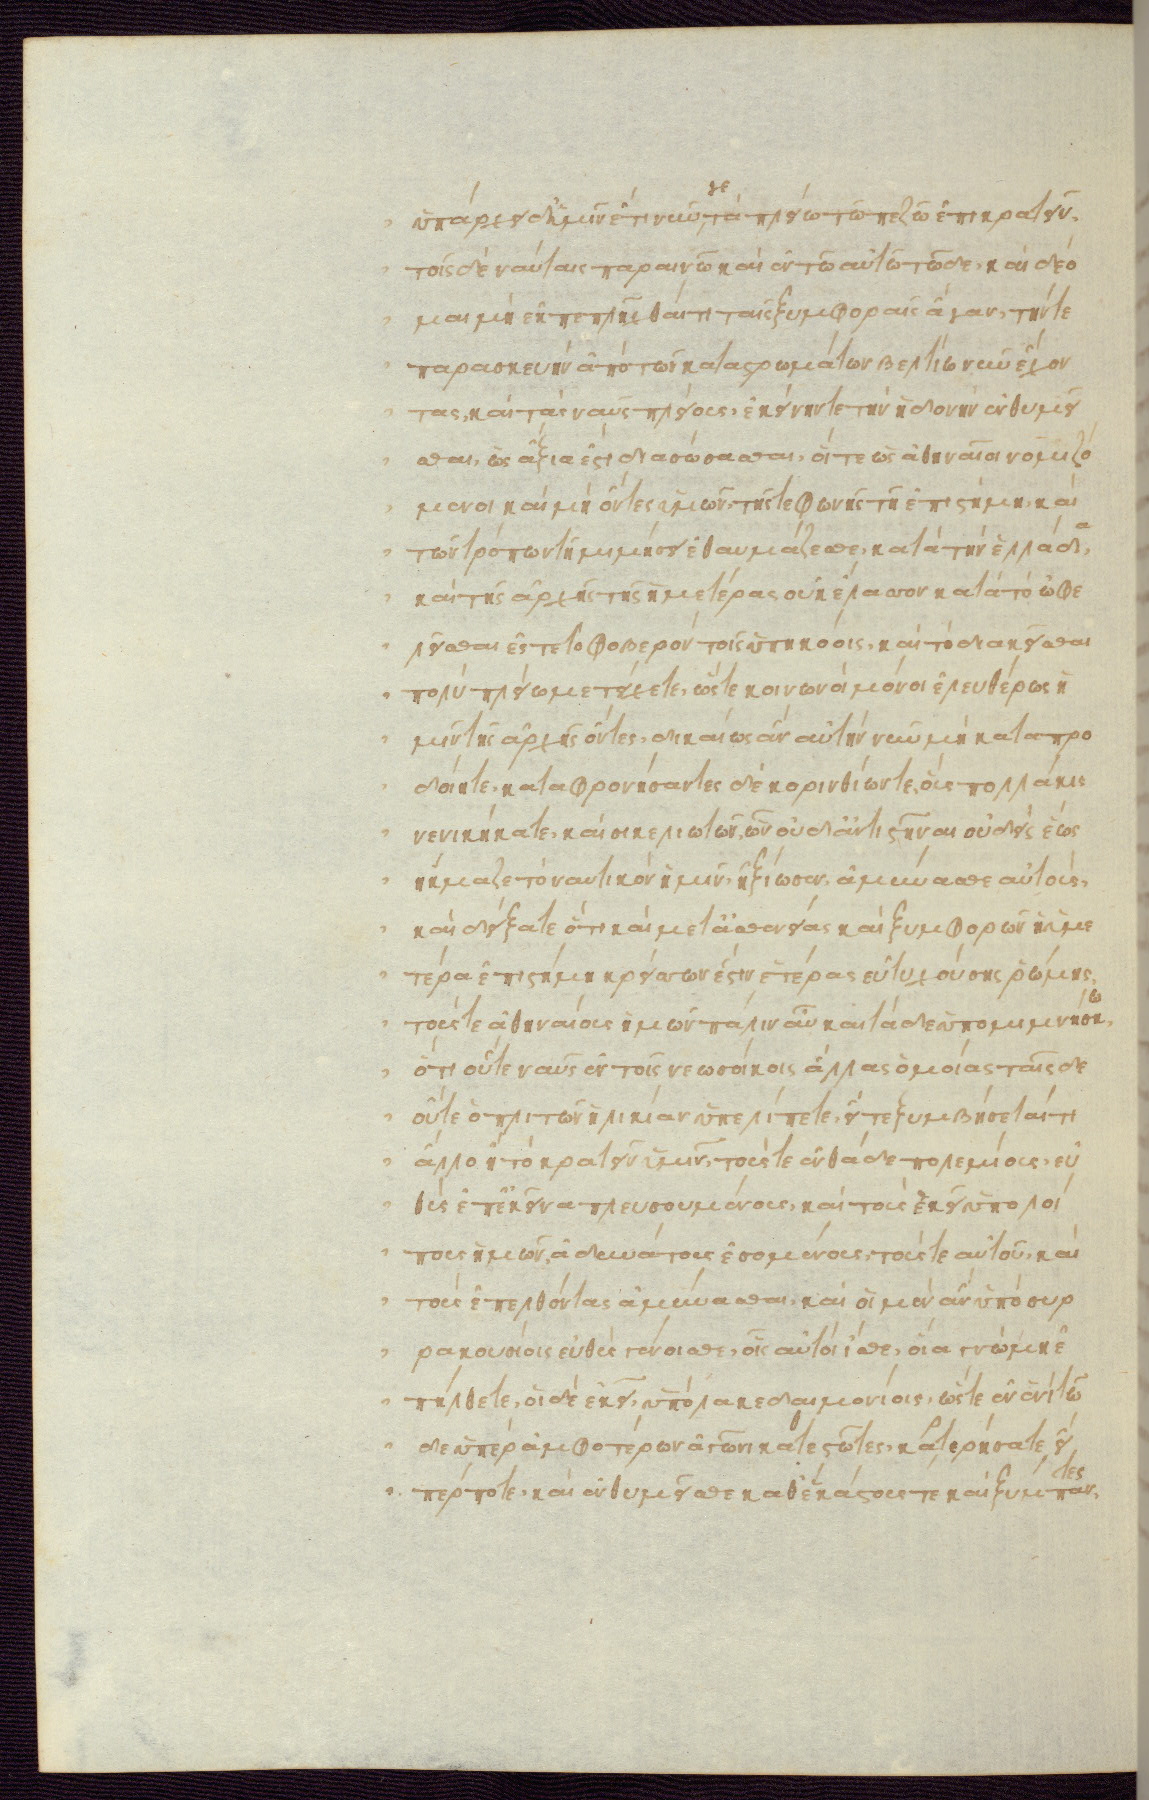 ὑπάρχει δ' ἡμῖν ἔτι νῦν γε τὰ πλείω τῶ πεζῶ ἐπικρατεῖν.
τοῖς δὲ ναύταις παραινῶ καὶ ἐν τῶ αὐτῶ τῶδε, καὶ δέο
μαι μὴ ἐκπεπλῆχθαί τι ταῖς ξυμφοραῖς ἄγαν, τήν τε
παρασκευὴν ἀπὸ τῶν καταστρωμάτων βελτίω νῦν ἔχον
τας, καὶ τὰς ναῦς πλείους, ἐκείνην τε τὴν ἡδονὴν ἐνθυμεῖ
σθαι, ὡς ἀξία ἐστὶ διασώσασθαι, οἵ τε ὡς ἀθηναῖοι νομιζό
μενοι καὶ μὴ ὄντες ὑμῶν, τῆς τε φωνῆς τῆ ἐπιστήμη, καὶ
τῶν τρόπων τῆ μιμήσει ἐθαυμάζεσθε, κατὰ τὴν ἑλλάδα,
καὶ τῆς ἀρχῆς τῆς ἡμετέρας οὐκ ἔλασσον κατὰ τὸ ὠφε
λεῖσθαι ἔς τε τὸ φοβερὸν τοῖς ὑπηκόοις, καὶ τὸ ἀδικεῖσθαι
πολὺ πλεῖω μετείχετε, ὥστε κοινωνοὶ μόνοι ἐλευθέρως ἡ
μῖν τῆς ἀρχῆς ὄντες, δικαίως ἂν αὐτὴν νῦν μὴ καταπρο
δοίητε, καταφρονήσαντες δὲ κορινθίων τε, οὓς πολλάκις
νενικήκατε, καὶ σικελιωτῶν, ὧν οὐδ' ἀντιστῆναι οὐδεὶς ἕως
ἤκμαζε τὸ ναυτικὸν ἡμῖν, ἠξίωσεν, ἀμύνασθε αὐτοὺς,
καὶ δείξατε ὅτι καὶ μετ' ἀσθενείας καὶ ξυμφορῶν ἡ ὑμε
τέρα ἐπιστήμη κρείσσων ἐστὶν ἑτέρας εὐτυχούσης ῥώμης,
τούς τε ἀθηναίους ὑμῶν πάλιν αὖ καὶ τάδε ὑπομιμνήσκω,
ὅτι οὔτε ναῦς ἐν τοῖς νεωσοίκοις ἄλλας ὁμοίας ταῖσδε
οὔτε ὁπλιτῶν ἡλικίαν ὑπελίπετε, εἴ τε ξυμβήσεταί τι
ἄλλο ἢ τὸ κρατεῖν ὑμῖν, τούς τε ἐνθάδε πολεμίους, εὐ
θὺς ἐπ' ἐκεῖνα πλευσουμένους, καὶ τοὺς ἐκεῖ ὑπολοί
πους ἡμῶν, ἀδυνάτους ἐσομένους, τούς τε αὐτοῦ, καὶ
τοὺς ἐπελθόντας ἀμύνασθαι, καὶ οἱ μὲν ἂν ὑπὸ συρ
ρακουσίοις εὐθὺς γένοισθε, οἷς αὐτοὶ ἴστε, οἵα γνώμη ἐ
πήλθετε, οἱ δὲ ἐκεῖ, ὑπὸ λακεδαιμονίοις, ὥστε ἐν ἑνὶ τῶ
δε ὑπὲρ ἀμφοτέρων ἀγῶνι καθεστῶτες, καρτερήσατε, εἴ
περ ποτε, καὶ ἐνθυμεῖσθε καθ' ἑκάστους τε καὶ ξύμπαντες,